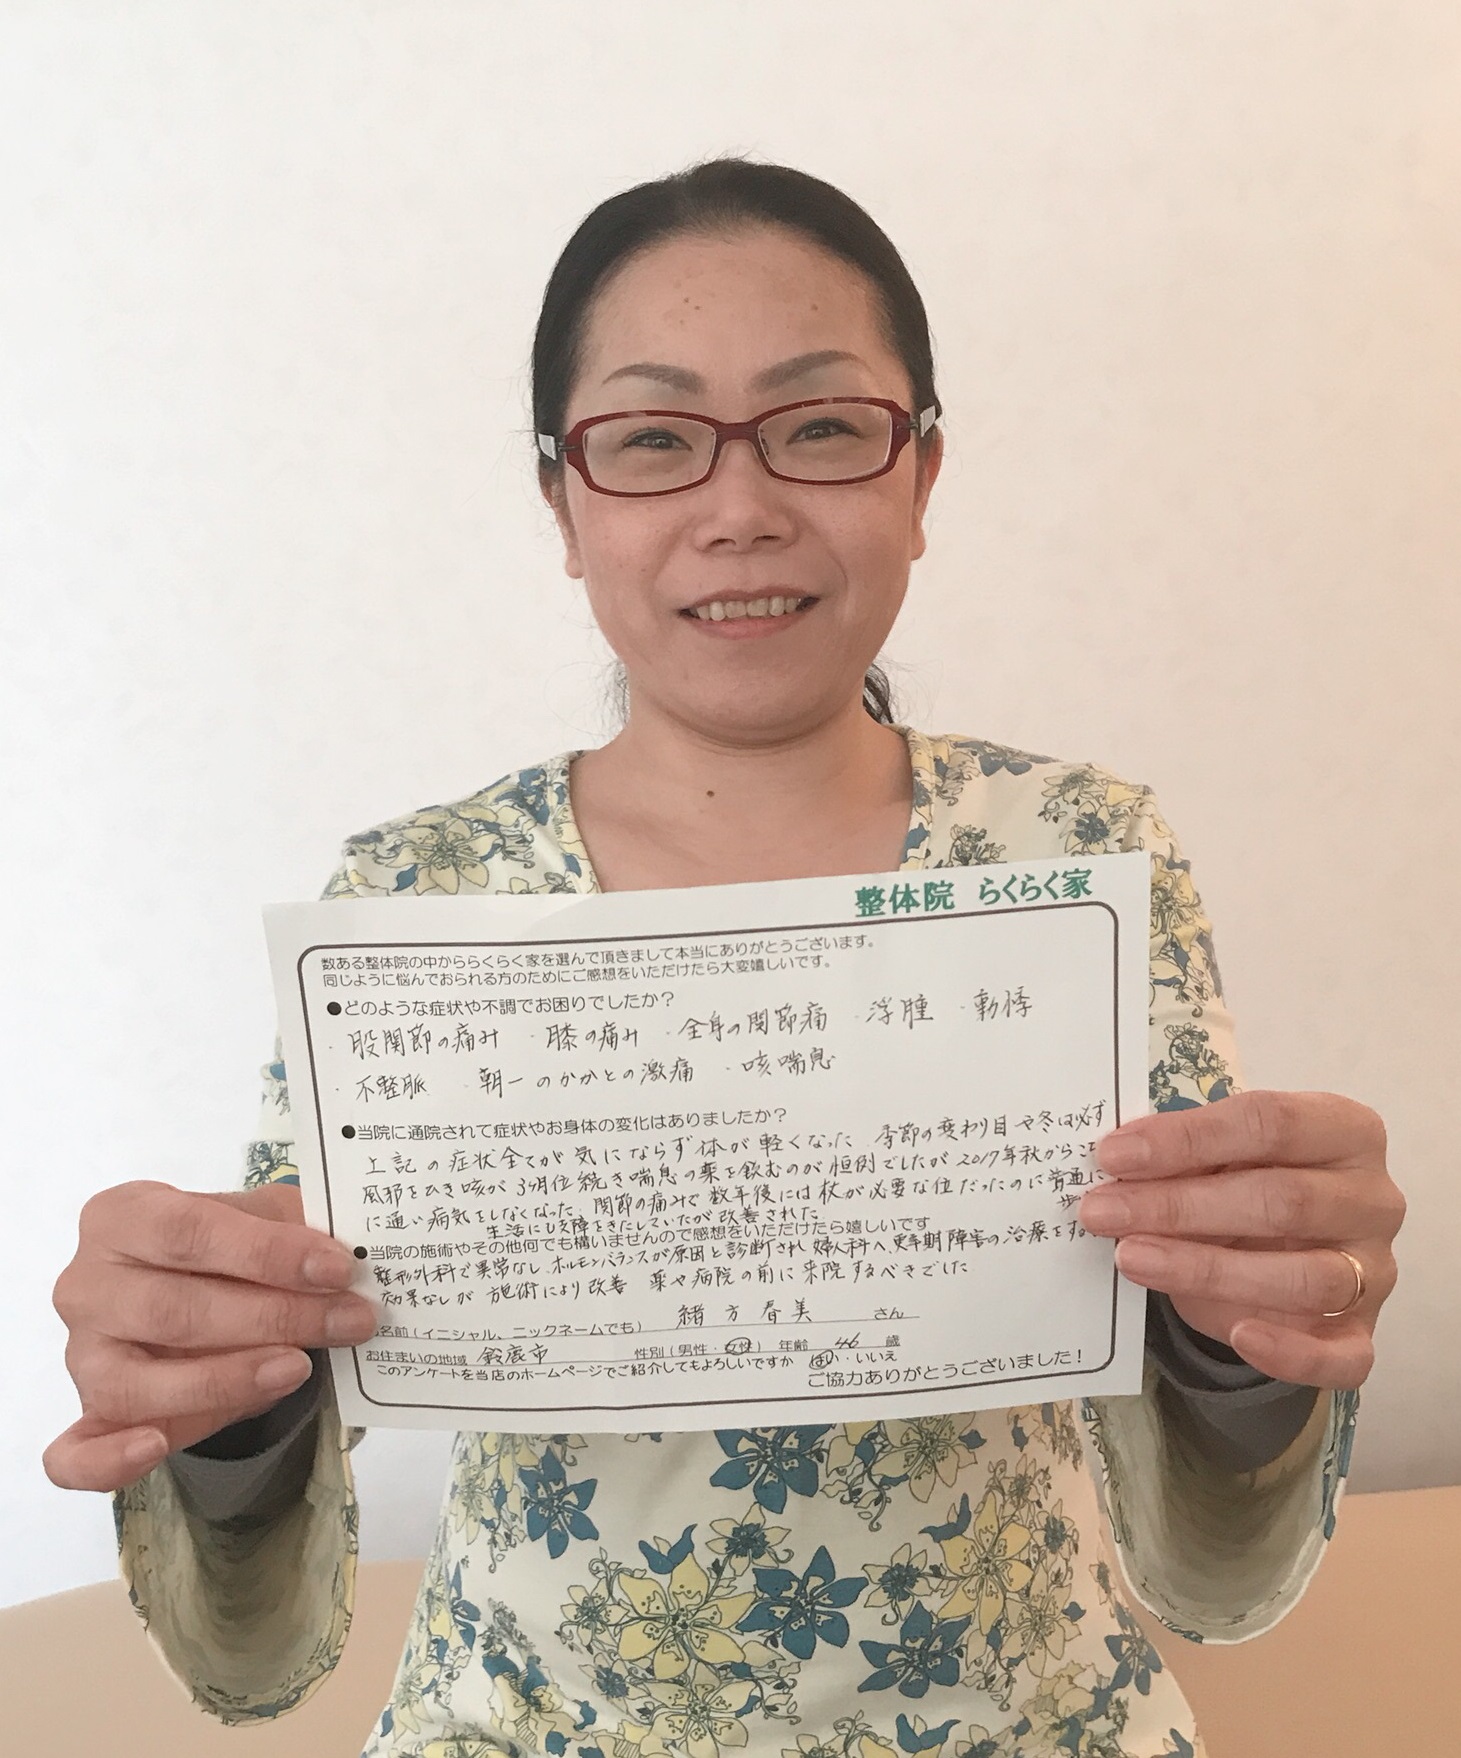 整体院 らくらく家
数ある整体院の中かららくらく家を選んで頂きまして本当にありがとうございます。
同じように悩んでおられる方のためにご感想をいただけたら大変嬉しいです。
●どのような症状や不調でお困りでしたか？
・股関節の痛み ・膝の痛み ・全身の関節痛 ・浮腫 ・動悸
・不整脈 ・朝一のかかとの激痛 ・咳喘息
●当院に通院されて症状やお身体の変化はありましたか？
上記の症状全てが気にならず体が軽くなった 季節の変わり目や冬は必ず
風邪をひき咳が3ヶ月位続き喘息の薬を飲むのが恒例でしたが2017年秋からこち
に通い病気をしなくなった、関節の痛みで数年後には杖が必要な位だったのに普通に
歩
生活にも支障をきたしていたが改善された
●当院の施術やその他何でも構いませんので感想をいただけたら嬉しいです
整形外科で異常なし、ホルモンバランスが原因と診断され婦人科へ、更年期障害の治療をする
効果なしが 施術により改善 薬や病院の前に来院するべきでした
名前(イニシャル、ニックネームでも) 緒方春美 さん
お住まいの地域 鈴鹿市 性別(男性・女性) 年齢 46 歳
このアンケートを当店のホームページでご紹介してもよろしいですか はい・いいえ
ご協力ありがとうございました！